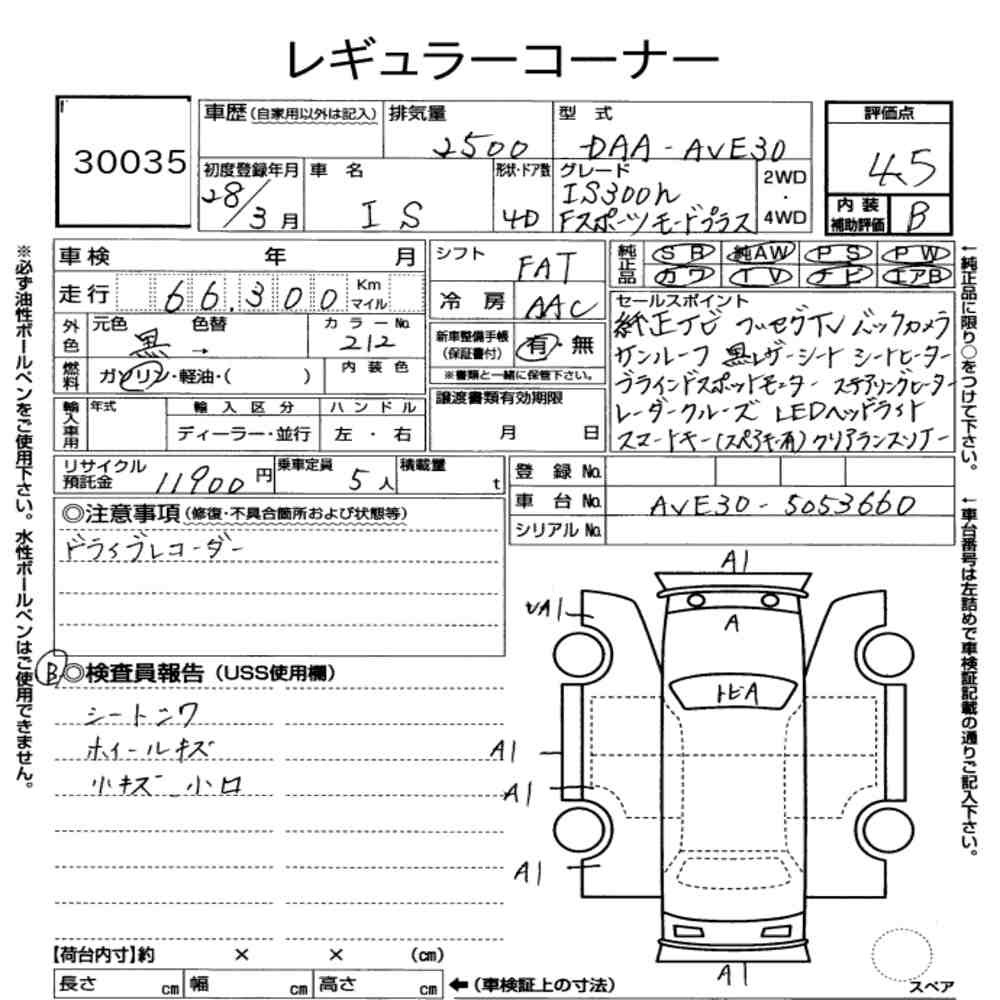 レギュラーコーナー
30035
車歴(自家用以外は記入)
排気量
2500
型式
DAA-AVE30
評価点
4.5
内装補助評価
B
初度登録年月
28/3月
車名
IS
形状・ドア数
4D
グレード
IS300h
Fスポーツモードプラス
2WD
・
4WD
車検 年 月
走行 66,300 Km マイル
シフト
FAT
冷房
AAC
純正品
SR 純AW PS PW
カワ TV ナビ エアB
外色
元色 色替
黒 →
カラーNo.
212
燃料
ガソリン・軽油・( )
内装色
新車整備手帳(保証書付)
有・無
※書類と一緒に保管下さい。
セールスポイント
純正ナビ フルセグTV バックカメラ
サンルーフ 黒レザーシート シートヒーター
ブラインドスポットモニター ステアリングヒーター
レーダークルーズ LEDヘッドライト
スマートキー(スペアキー有)クリアランスソナー
輸入車用
年式
輸入区分
ディーラー・並行
ハンドル
左・右
譲渡書類有効期限
月 日
リサイクル預託金
11900円
乗車定員
5人
積載量
t
登録No.
車台No.
AVE30-5053660
シリアルNo.
◎注意事項(修復・不具合箇所および状態等)
ドライブレコーダー
B
◎検査員報告(USS使用欄)
シートシワ
ホイールキズ
小キズ 小凹
A1
UA1
A
トビA
A1
A1
A1
A1
【荷台内寸】約 × × (cm)
長さ cm 幅 cm 高さ cm
←(車検証上の寸法)
スペア
※必ず油性ボールペンをご使用下さい。水性ボールペンはご使用できません。
←純正品に限り○をつけて下さい。
←車台番号は左詰めで車検証記載の通りご記入下さい。